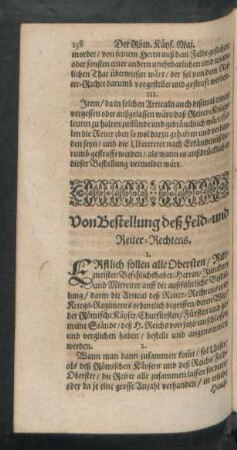 238 Der Röm. Käys. Mai.
mordet / von seinem Herrn auß dem Felde gestohen
oder sonsten einer andern unehebarlichen und unred-
lichen That uberwiesen wäre / der sol von dem
ter-Rechte darumb vorgestellet und gestrafft werden.
III.
Item / da in solchen Articuln auch dißmals etwas
vergessen oder außgelassen wäre / daß Reiter-Kriegs-
leuten zu halten zustünde und gebräuchlich wäre /
len die Reiter eben so wol darzu gehalten und verbun-
den seyn / und die Ubertreter nach Erkändtnüß
rumb gestrafft werden / als wann es außdrücklich in
dieser Bestallung vermeldet wäre.
Von Bestellung deß Feld- und
Reiter-Rechtens.
1.
ERstlich sollen alle Obersten / Ritt-
meister / Befehlichshaber / Herren / Junckern
und Mitreiter / auff die außführliche Bestal-
lung / darin die Articul deß Reiter-Rechtens und
Kriegs-Regiments ordentlich begriffen / deren
der Römische Käyser / Churfürsten / Fürsten und
meine Stände / deß H. Reichs von jetzo an
und verglichen haben / bestelle und angenommen
werden.
2.
Wann man dann zusammen kömt / sol Unser /
als deß Römischen Käysers und deß Reichs Feld-
Oberster / die Reiter alle zusammen lassen fordern /
oder da je eine grosse Anzahl verhanden / in
Hauf-